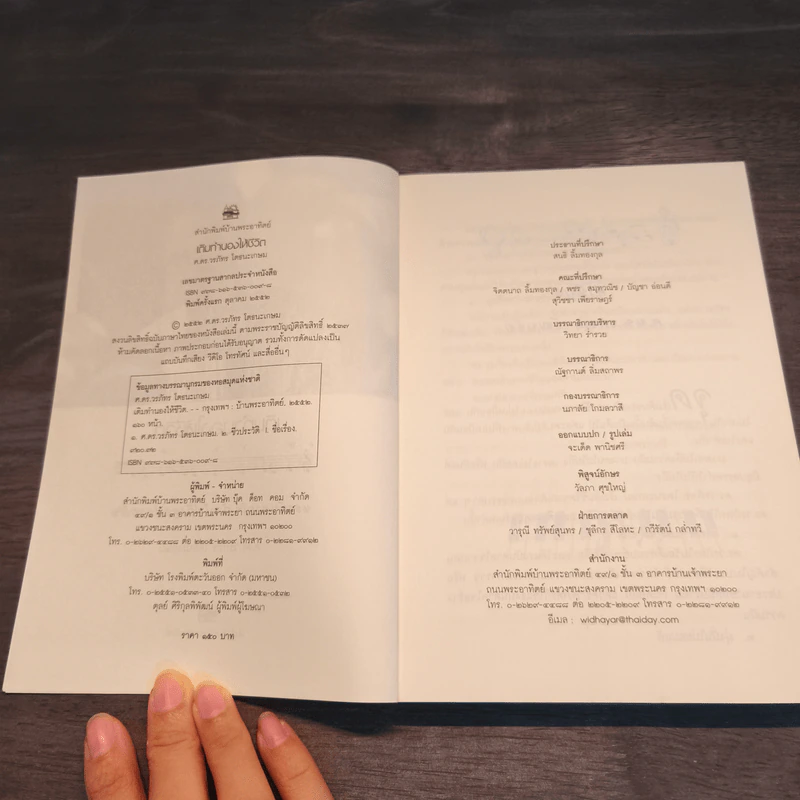 สำนักพิมพ์บ้านพระอาทิตย์
เติมทำนองให้ชีวิต
ศ.ดร.วรภัทร โตธนะเกษม
เลขมาตรฐานสากลประจำหนังสือ
ISBN ๙๗๘-๖๑๖-๕๓๖-๐๐๙-๘
พิมพ์ครั้งแรก ตุลาคม ๒๕๕๒
© ๒๕๕๒ ศ.ดร.วรภัทร โตธนะเกษม
สงวนลิขสิทธิ์ฉบับภาษาไทยของหนังสือเล่มนี้ ตามพระราชบัญญัติลิขสิทธิ์ ๒๕๓๗
ห้ามคัดลอกเนื้อหา ภาพประกอบก่อนได้รับอนุญาต รวมทั้งการดัดแปลงเป็น
แถบบันทึกเสียง วีดิโอ โทรทัศน์ และสื่ออื่นๆ
ข้อมูลทางบรรณานุกรมของหอสมุดแห่งชาติ
ศ.ดร.วรภัทร โตธนะเกษม
เติมทำนองให้ชีวิต. -- กรุงเทพฯ : บ้านพระอาทิตย์, ๒๕๕๒.
๑๖๐ หน้า.
๑. ศ.ดร.วรภัทร โตธนะเกษม ๒. ชีวประวัติ I. ชื่อเรื่อง.
๙๒๐.๙๒
ISBN ๙๗๘-๖๑๖-๕๓๖-๐๐๙-๘
ผู้พิมพ์ - จำหน่าย
สำนักพิมพ์บ้านพระอาทิตย์ บริษัท บุ๊ค ด็อท คอม จำกัด
๔๙/๑ ชั้น ๓ อาคารบ้านเจ้าพระยา ถนนพระอาทิตย์
แขวงชนะสงคราม เขตพระนคร กรุงเทพฯ ๑๐๒๐๐
โทร. ๐-๒๖๒๙-๔๔๘๘ ต่อ ๒๒๐๕-๒๒๐๙ โทรสาร ๐-๒๒๘๑-๙๙๑๒
พิมพ์ที่
บริษัท โรงพิมพ์ตะวันออก จำกัด (มหาชน)
โทร. ๐-๒๕๕๑-๐๕๓๓-๔๐ โทรสาร ๐-๒๕๕๑-๐๕๓๒
ตุลย์ ศิริกุลพิพัฒน์ ผู้พิมพ์ผู้โฆษณา
ราคา ๑๕๐ บาท
ประธานที่ปรึกษา
สนธิ ลิ้มทองกุล
คณะที่ปรึกษา
จิตตนาถ ลิ้มทองกุล / พชร สมุทวณิช / บัญชา อ่อนดี
สุวิชชา เพียราษฎร์
บรรณาธิการบริหาร
วิทยา ร่ำรวย
บรรณาธิการ
ณัฐกานต์ ลิ่มสถาพร
กองบรรณาธิการ
นภาลัย โกมลวาสี
ออกแบบปก / รูปเล่ม
จะเด็ด พานิชศรี
พิสูจน์อักษร
วัลภา ศุขใหญ่
ฝ่ายการตลาด
วารุณี ทรัพย์สุนทร / ชุลีกร สีโลหะ / กวีรัตน์ กล่ำทวี
สำนักงาน
สำนักพิมพ์บ้านพระอาทิตย์ ๔๙/๑ ชั้น ๓ อาคารบ้านเจ้าพระยา
ถนนพระอาทิตย์ แขวงชนะสงคราม เขตพระนคร กรุงเทพฯ ๑๐๒๐๐
โทร. ๐-๒๖๒๙-๔๔๘๘ ต่อ ๒๒๐๕-๒๒๐๙ โทรสาร ๐-๒๒๘๑-๙๙๑๒
อีเมล : widhayar@thaiday.com